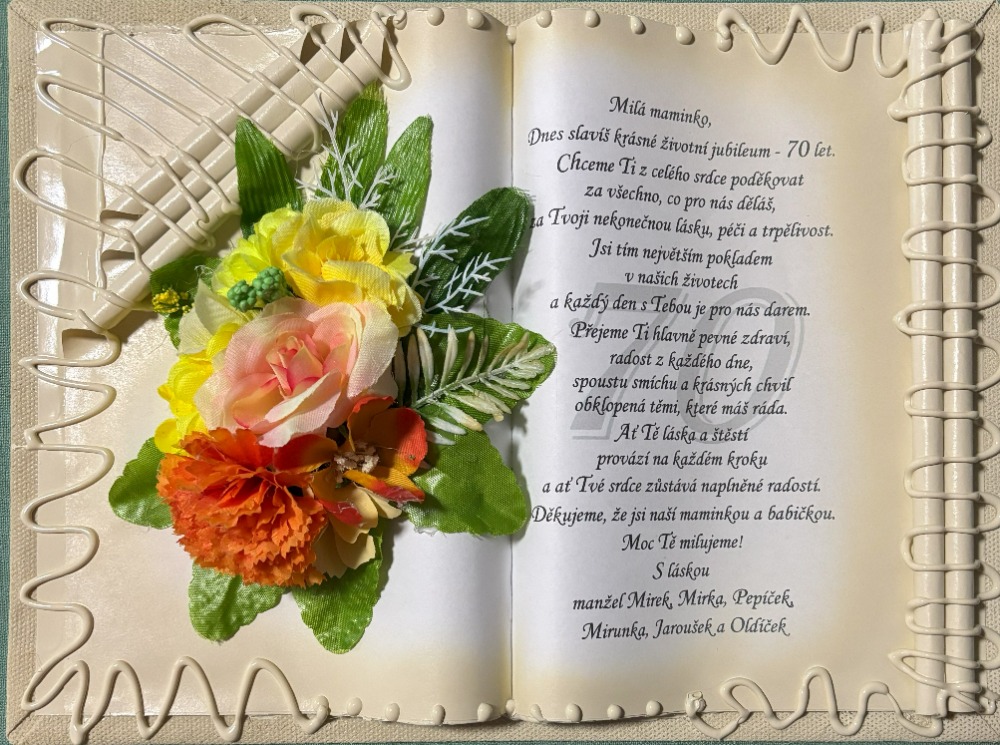 Milá maminko,
Dnes slavíš krásné životní jubileum - 70 let.
Chceme Ti z celého srdce poděkovat
za všechno, co pro nás děláš,
za Tvoji nekonečnou lásku, péči a trpělivost.
Jsi tím největším pokladem
v našich životech
a každý den s Tebou je pro nás darem.
Přejeme Ti hlavně pevné zdraví,
radost z každého dne,
spoustu smíchu a krásných chvil
obklopená těmi, které máš ráda.
Ať Tě láska a štěstí
provází na každém kroku
a ať Tvé srdce zůstává naplněné radostí.
Děkujeme, že jsi naší maminkou a babičkou.
Moc Tě milujeme!
S láskou
manžel Mirek, Mirka, Pepíček,
Mirunka, Jaroušek a Oldíček
70